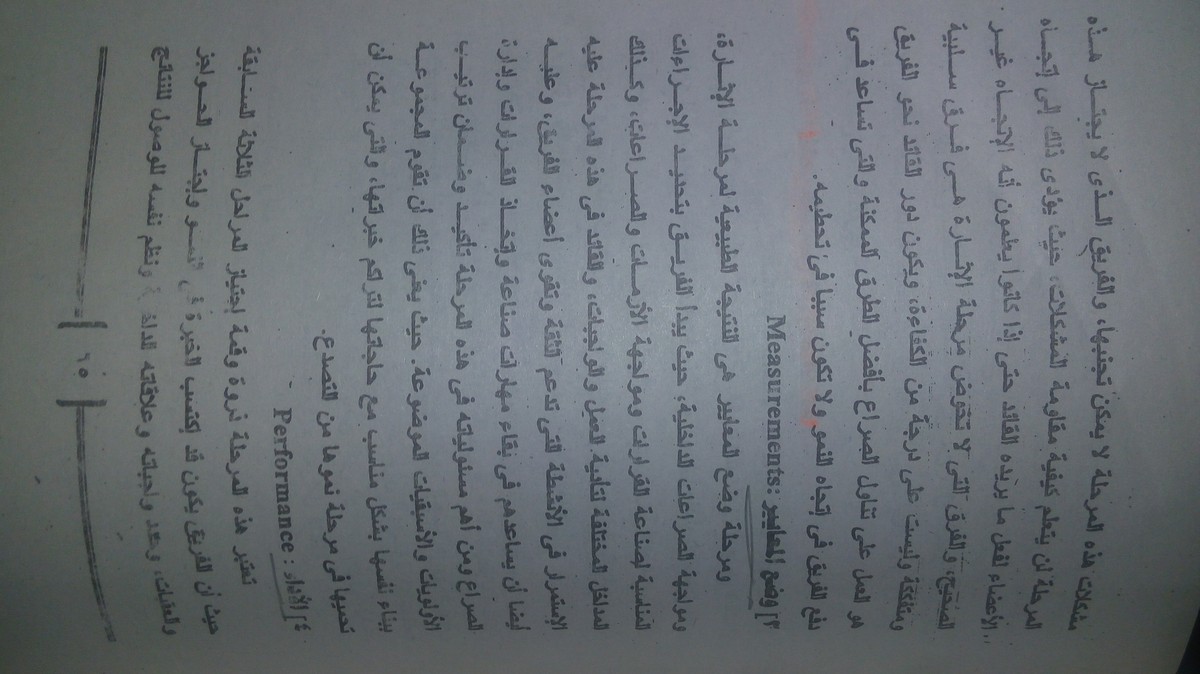 مشكلات هذه المرحلة لا يمكن تجنبها، والفريق الذى لا يجتاز هذه
المرحلة لن يتعلم كيفية مقاومة المشكلات، حيث يؤدى ذلك إلى إتجاه
الأعضاء لفعل ما يريده القائد حتى إذا كانوا يعلمون أنه الإتجاه غير
الصحيح، والفرق التى لا تخوض مرحلة الإثارة هى فرق سلبية
ومتفككة وليست على درجة من الكفاءة، ويكون دور القائد نحو الفريق
هو العمل على تناول الصراع بأفضل الطرق الممكنة والتى تساعد فى
دفع الفريق فى إتجاه النمو ولا تكون سبباً فى تحطيمه.
٣] وضع المعايير: Measurements
ومرحلة وضع المعايير هى النتيجة الطبيعية لمرحلة الإثارة،
ومواجهة الصراعات الداخلية، حيث يبدأ الفريق بتحديد الإجراءات
المناسبة لصناعة القرارات ومواجهة الأزمات والصراعات، وكذلك
المداخل المختلفة لتأدية العمل والواجبات، والقائد فى هذه المرحلة عليه
الإستمرار فى الأنشطة التى تدعم الثقة وتقوى أعضاء الفريق، وعليه
أيضاً أن يساعدهم فى بقاء مهارات صناعة وإتخاذ القرارات وإدارة
الصراع ومن أهم مسئولياته فى هذه المرحلة تأكيد وضمان ترتيب
الأولويات والأسبقيات الموضوعة. حيث يعنى ذلك أن تقوم المجموعة
ببناء نفسها بشكل مناسب مع حاجاتها لتراكم خبراتها، والتى يمكن أن
تحميها فى مرحلة نموها من التصدع.
٤] الأداء: Performance
تعتبر هذه المرحلة ذروة وقمة إجتياز المراحل الثلاثة السابقة
حيث أن الفريق يكون قد إكتسب الخبرة فى النمو وإجتاز الحواجز
والعقبات، وحدد واجباته وعلاقاته ونظم نفسه للوصول للنتائج
٦٥